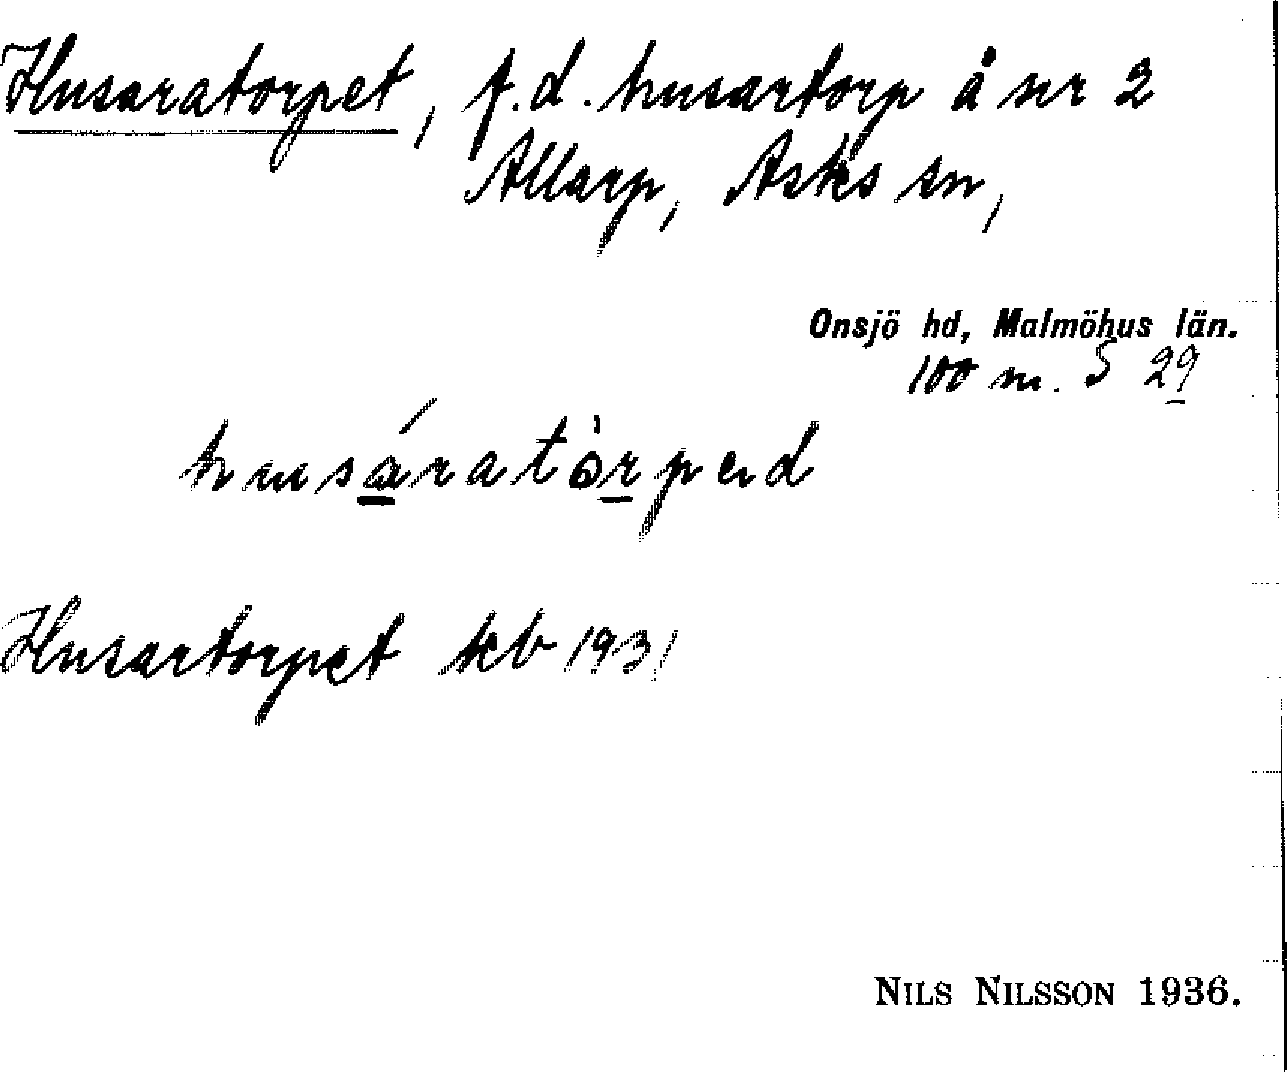 Husaratorpet, f.d. husartorp å nr 2
Allarp, Asks sn,
Onsjö hd, Malmöhus län.
100 m. S 29
husáratòrped
Husartorpet kb 1931
NILS NILSSON 1936.